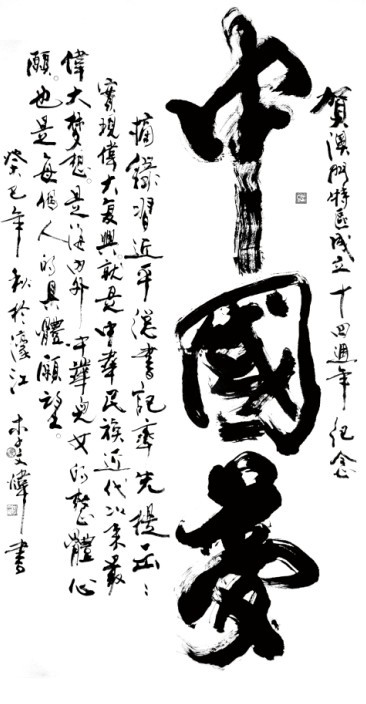 賀澳門特區成立十四週年纪念
中國夢
摘錄習近平總書記率先提出：
實現偉大复興就是中華民族近代以來最
偉大梦想。是海内外中華兒女的整體心
願。也是每個人的具體願望。
癸巳年秋於濠江 書